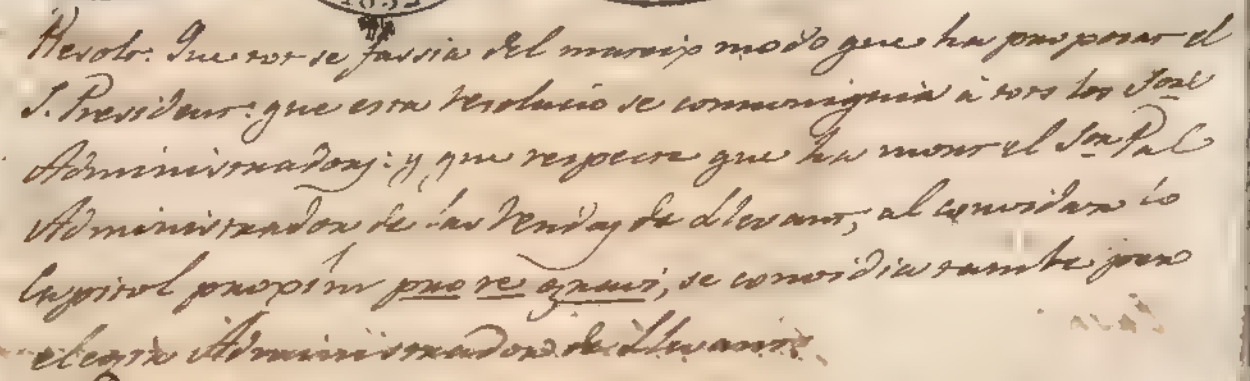 1832
Resolt: Que tot se fassia del mateix modo que ha proposat el
S. President: que esta resolucio se comuniquia à tots los Sors
Administradors: y que respecte que ha mort el Sor Pal
Administrador de las rendas de Llevant, al convidar lo
Capitol proxim pro re gravi, se convidia tambe per
elegir Administrador de Llevant